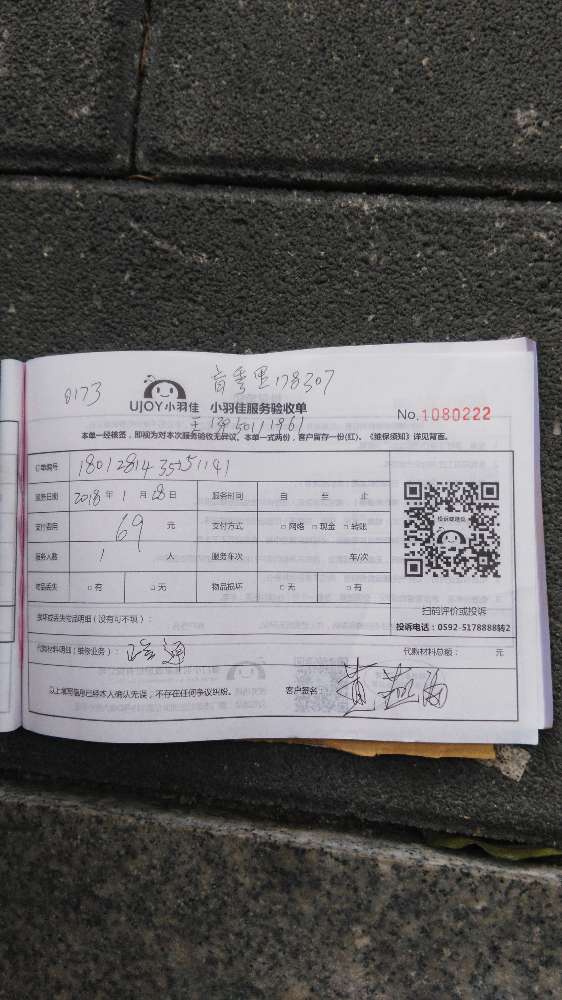 0173
178307
UJOY小羽佳 小羽佳服务验收单
No.1080222
本单一经核签,即视为对本次服务验收无异议。本单一式两份,客户留存一份(红)。《维保须知》详见背面。
订单编号
服务日期 2018 年 1 月 28 日 服务时间 自 至 止
支付费用 69 元 支付方式 □网络 □现金 □转账
服务人数 1 人 服务车次 车/次
物品丢失 □有 □无 物品损坏 □无 □有
扫码评价或投诉
投诉电话:0592-5178888转2
损坏或丢失物品明细(没有可不填):
代购材料明细(装修业务): 通 代购材料总额: 元
以上填写信息已经本人确认无误,不存在任何争议纠纷。 客户签名: 黄